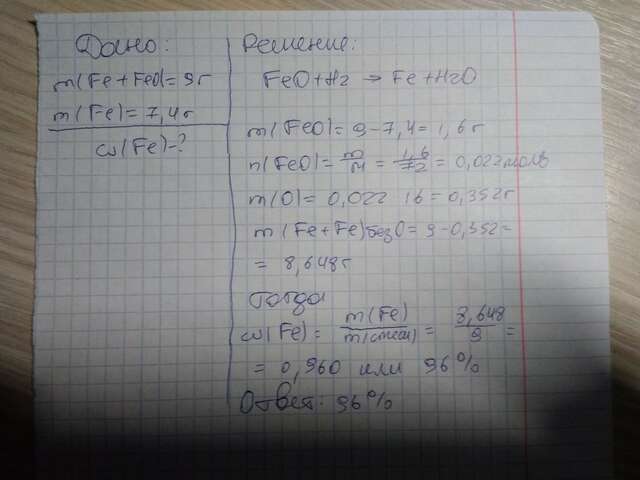 Дано:
m(Fe+FeO)=9г
m(Fe)=7,4г
ω(Fe)-?
Решение:
FeO+H2 → Fe+H2O
m(FeO)=9-7,4=1,6г
n(FeO)= m/M = 1,6/72 = 0,022моль
m(O)= 0,022 16=0,352г
m(Fe+Fe)безO=9-0,352=
= 8,648г
Тогда
ω(Fe)= m(Fe)/m(смеси) = 8,648/9 =
= 0,960 или 96%
Ответ: 96%